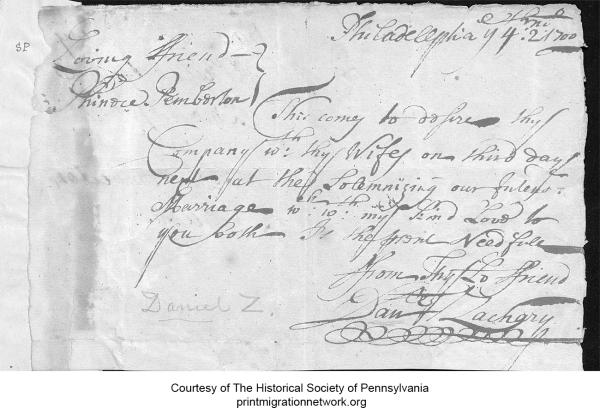 SP
Philadellphia ye 4th 2d mo 1700
Loving ffriend
Phinece Pemberton
This comes to desire thy
Company wth thy Wifes on third day
next at the Solemnizing our Intend
Marriage wch wth my kind Love to
you both Is the psent Needfull
ffrom Thy Lo ffriend
Danll Zachary
Daniel Z.
Courtesy of The Historical Society of Pennsylvania
printmigrationnetwork.org